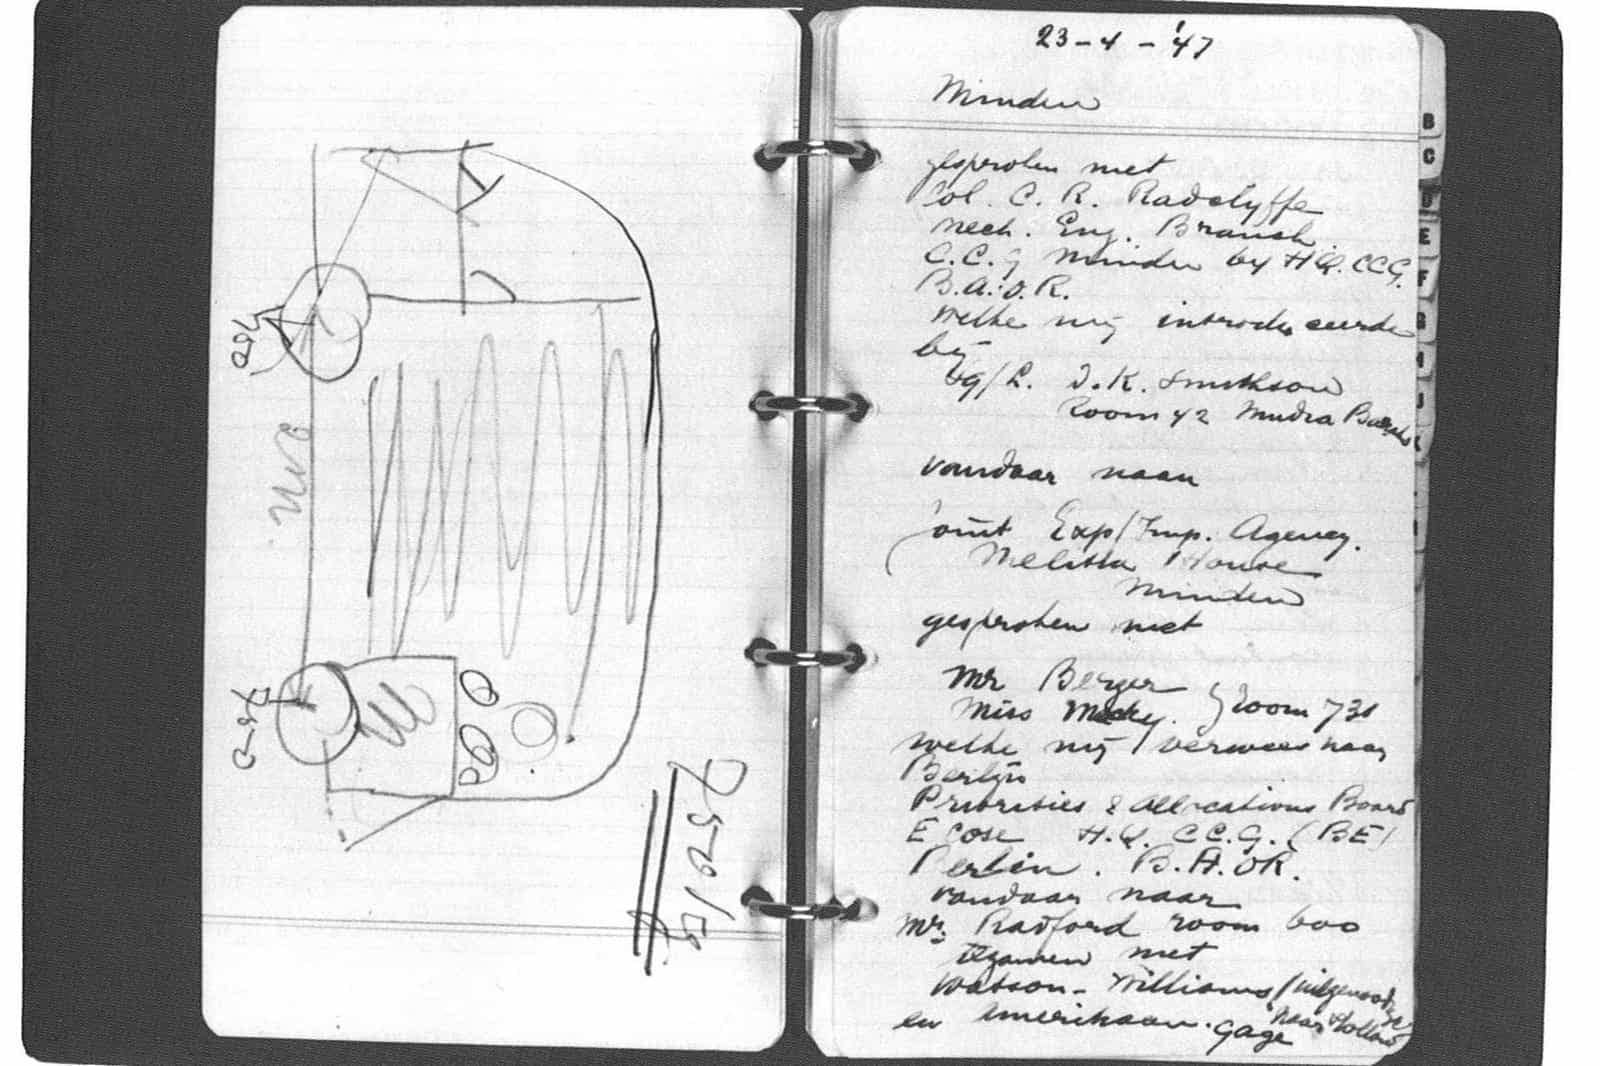 750 kg
23-4-'47
Minden
gesproken met
Col. C. R. Radclyffe
Mech. Eng. Branch.
C.C.G Minden by HQ. CCG.
B.A.O.R.
welke mij introduceerde
bij
I.K. Smithson
Room 42 Mudra
vandaar naar
Joint Exp/Imp. Agency.
Melitta House
Minden
gesproken met
Mr Berger
Miss Room 731
welke mij verwees naar
Berlijn
Priorities & Allocations Board
E Cose H.Q. CC.G. (BE)
Berlin. B.A.OR.
vandaar naar
Mr. Radford room 600
tezamen met
Watson-Williams /uitgenoodigd
naar Holland
en Amerikaan. Gage